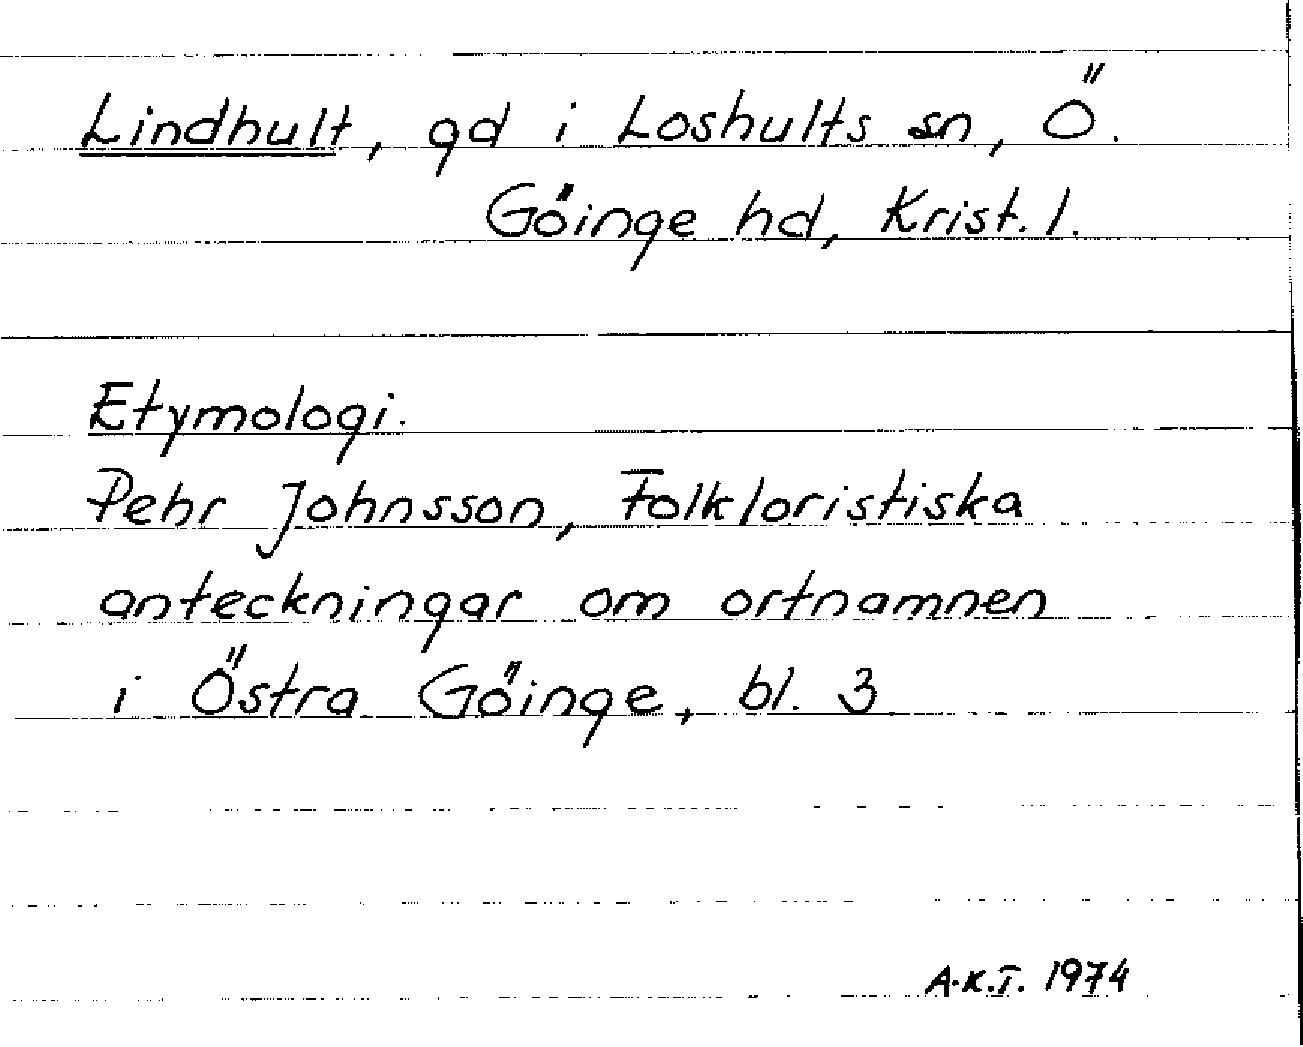 Lindhult, gd i Loshults sn, Ö.
Göinge hd, Krist. l.
Etymologi.
Pehr Johnsson, Folkloristiska
anteckningar om ortnamnen
i Östra Göinge, bl. 3
A.K.T. 1974